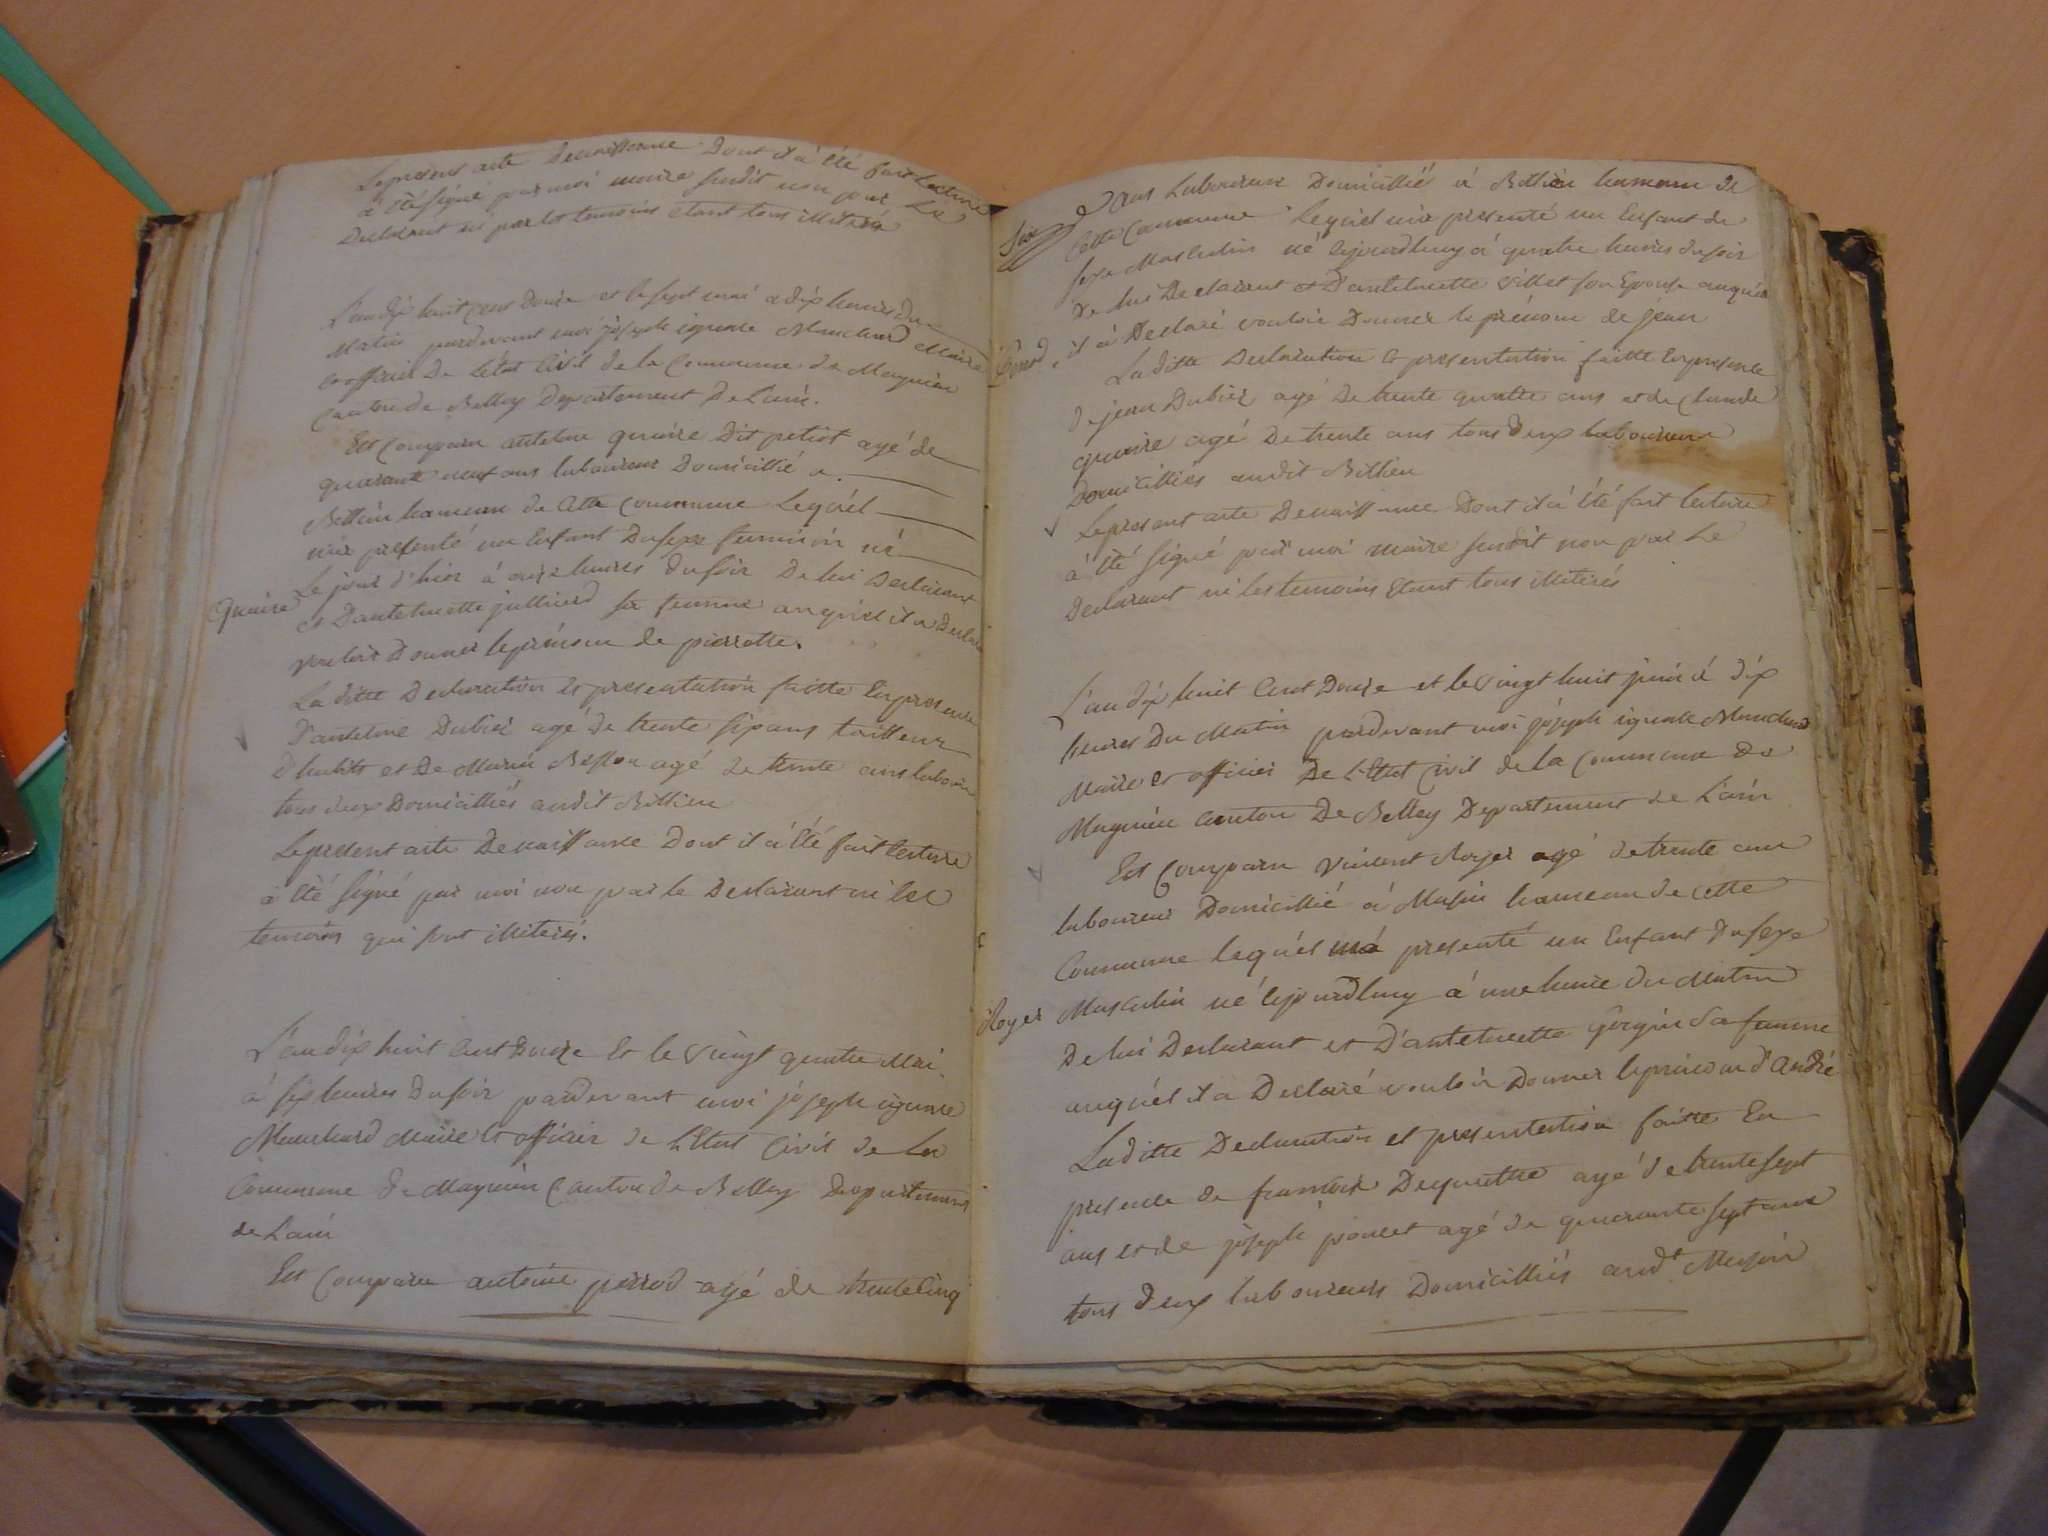 Le present acte de naissance Dont il à été fait Lecture
à été signé par moi maire susdit non par Le
Declarant ni par les temoins etant tous illiterés
L'an dix huit cent Douze et le sept mai a dix heures Du
Matin pardevant moi joseph ignace Maire
et officier De l'état Civil de la Commune de Magnieu
Canton de Belley Departement De L'ain.
Est Comparu antelme quaire Dit petiot agé de
quarante neuf ans laboureur Domicillié a
Billieu hameau de Cette Commune Lequel
m'a presenté un Enfant Du sexe feminin né
Le jour d'hier à onze heures du soir De lui Declarant
Quaire
et D'antelmette julliard sa femme auquel il a Declaré
vouloir Donner le prénom de pierrotte.
La ditte Declaration et presentation faitte En presence
D'antelme Dubiez agé de trente six ans tailleur
d'habits et De Marin Besson agé de trente ans laboureur
tous deux Domicilliés audit Billieu
Le present acte De naissance Dont il à été fait lecture
à été signé par moi non par le Declarant ni les
temoins qui sont illiterés.
L'an dix huit cent Douze Et le vingt quatre Mai
à six heures Du soir pardevant moi joseph ignace
Maire et officier de L'Etat Civil de La
Commune de Magnieu Canton de Belley Departement
de L'ain
Est Comparu antoine perrod agé de trente cinq
ans Laboureur Domicillié à Billieu hameau de
Cette Commune Lequel m'a presenté un Enfant de
sexe Masculin né cejourdhuy à quatre heures du soir
De lui Declarant et D'antelmette Billet son Epouse auquel
il à Declaré vouloir Donner le prénom de jean
La ditte Declaration et presentation faitte En presence
De jean Dubiez agé De trente quatre ans et de Claude
quaire agé De trente ans tous deux laboureurs
Domicilliés audit Billieu
Le present acte De naissance Dont il à été fait lecture
à été signé par moi maire susdit non par Le
Declarant ni les temoins Etant tous illiterés
L'an dix huit Cent Douze et le vingt huit juin à dix
heures Du Matin pardevant moi joseph ignace
Maire et officier De L'Etat Civil de la Commune De
Magnieu Canton De Belley Departement de L'ain
Est Comparu vincent Royer agé de trente ans
laboureur Domicillié à Musin hameau de Cette
Commune lequel m'à presenté un Enfant Du sexe
Royer
Masculin né cejourdhuy à une heure du Matin
De lui Declarant et D'antelmette sa femme
auquel il a Declaré vouloir Donner le prénom d'André
La ditte Declaration et presentation faitte En
presence de francois agé de trente sept
ans et de joseph poncet agé de quarante sept ans
tous deux laboureurs Domicilliés aud.t Musin